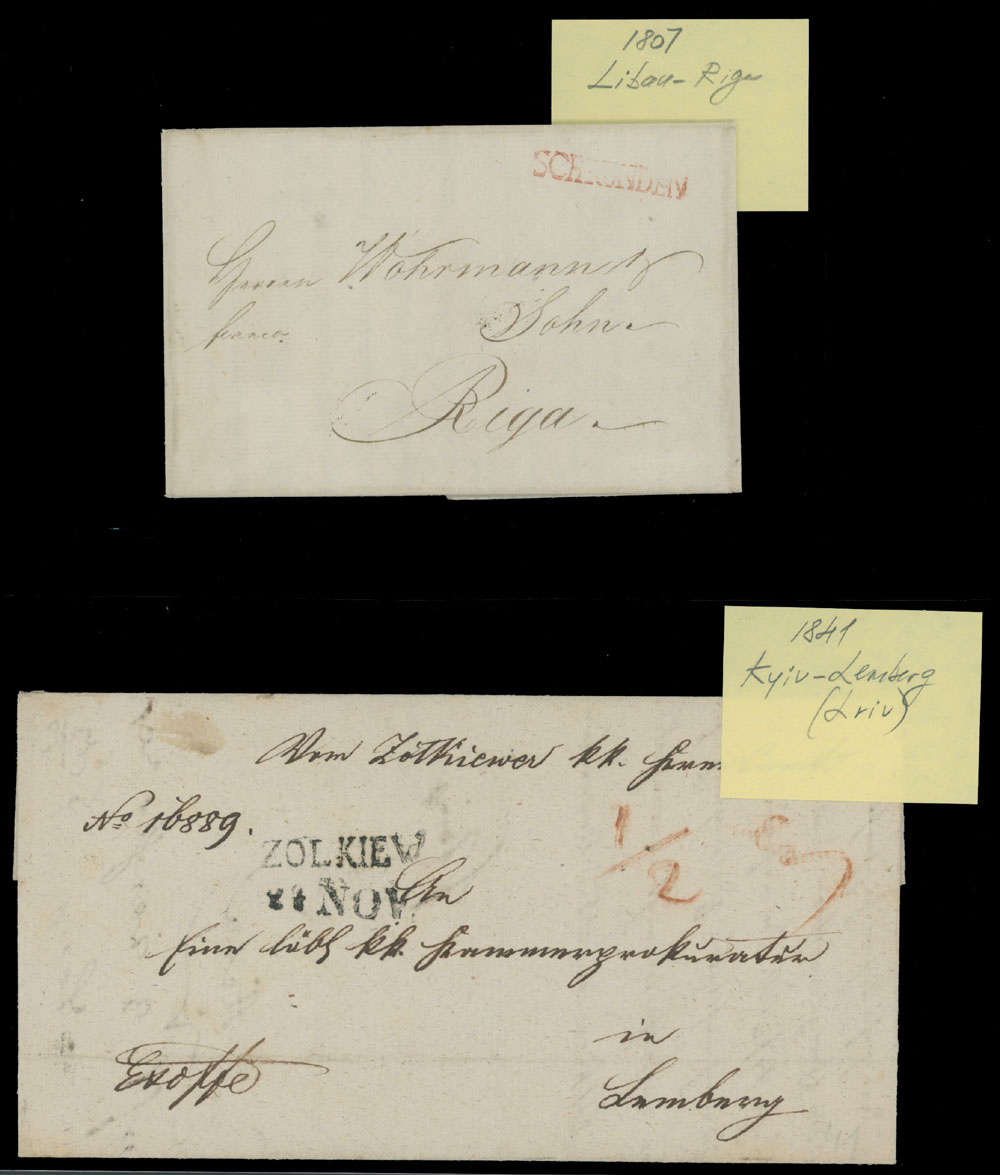 1807
Libau - Riga
SCHRUNDEN
Herren Wöhrmann &
franco. Sohn.
Riga.
1841
Kyiv - Lemberg
(Lviv)
Vom Zolkiewer kk.
No 16889.
1/2
ZOLKIEW
NOV.
An
Eine löbl kk. Kammerprokuratur
in
Exoffo
Lemberg